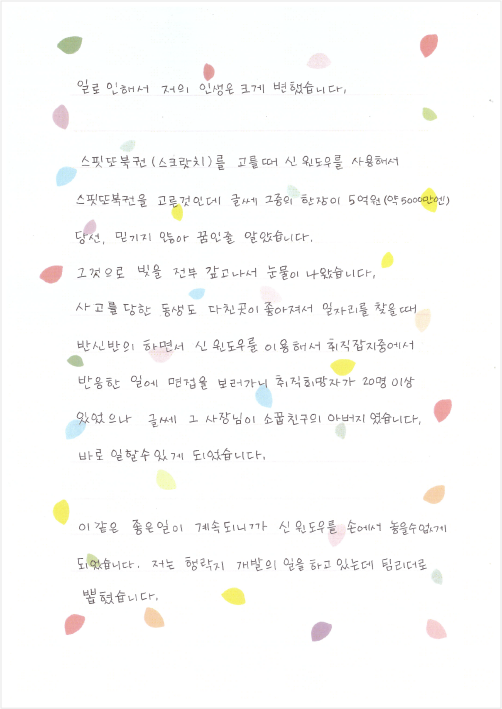 일로 인해서 저의 인생은 크게 변했습니다.
스핏또복권(스크랏치)를 고를때 신 윈도우를 사용해서
스핏또복권을 고른것인데 글쎄 그중의 한장이 5억원(약5000만엔)
당선, 믿기지 않아 꿈인줄 알았습니다.
그것으로 빚을 전부 갚고나서 눈물이 나왔습니다.
사고를 당한 동생도 다친곳이 좋아져서 일자리를 찾을때
반신반의 하면서 신 윈도우를 이용해서 취직잡지중에서
반응한 일에 면접을 보러가니 취직희망자가 20명 이상
있었으나 글쎄 그 사장님이 소꿉친구의 아버지였습니다.
바로 일할수 있게 되었습니다.
이같은 좋은일이 계속되니까 신 윈도우를 손에서 놓을수 없게
되었습니다. 저는 행락지 개발의 일을 하고 있는데 팀리더로
뽑혔습니다.